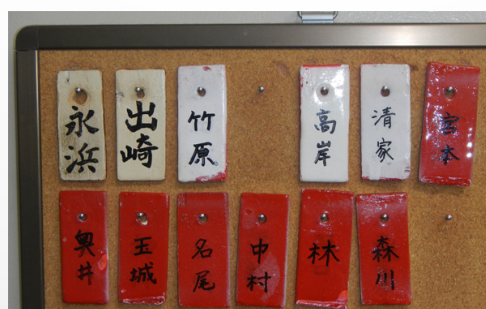 永浜
出崎
竹原
高岸
清家
宮本
奥井
玉城
名尾
中村
林
森川